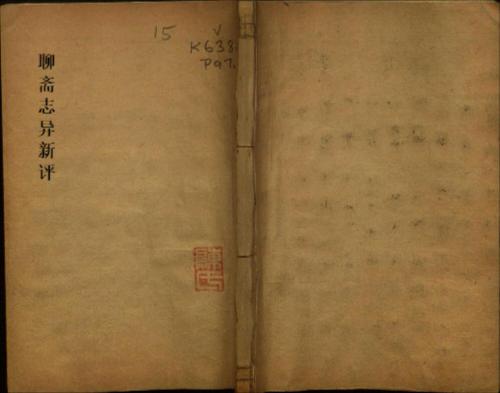 聊斋志异新评
15 V
K638
P97.